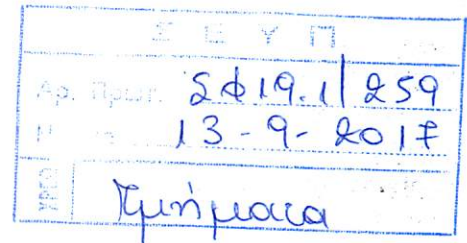 Σ Ε Υ Π
Αρ. Πρωτ. 2φ19.1/259
13-9-2017
Τμήματα